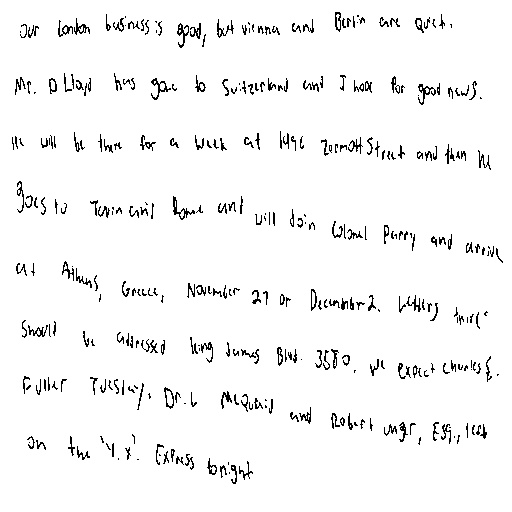 Our London business is good, but vienna and Berlin are quiet.
Mr. D Lloyd has gone to Switzerland and I hope for good news.
He will be there for a week at 1496 Zermott Street and then he
goes to Turin and Rome and will join Colonel Parry and arrive
at Athens, Greece, November 27 or December 2. Letters there
should be addressed king James Blvd. 3580. We expect Charles E.
Fuller Tuesday. Dr. L McQuaid and Robert Unger, Esq., left
on the 'Y.X'. Express tonight